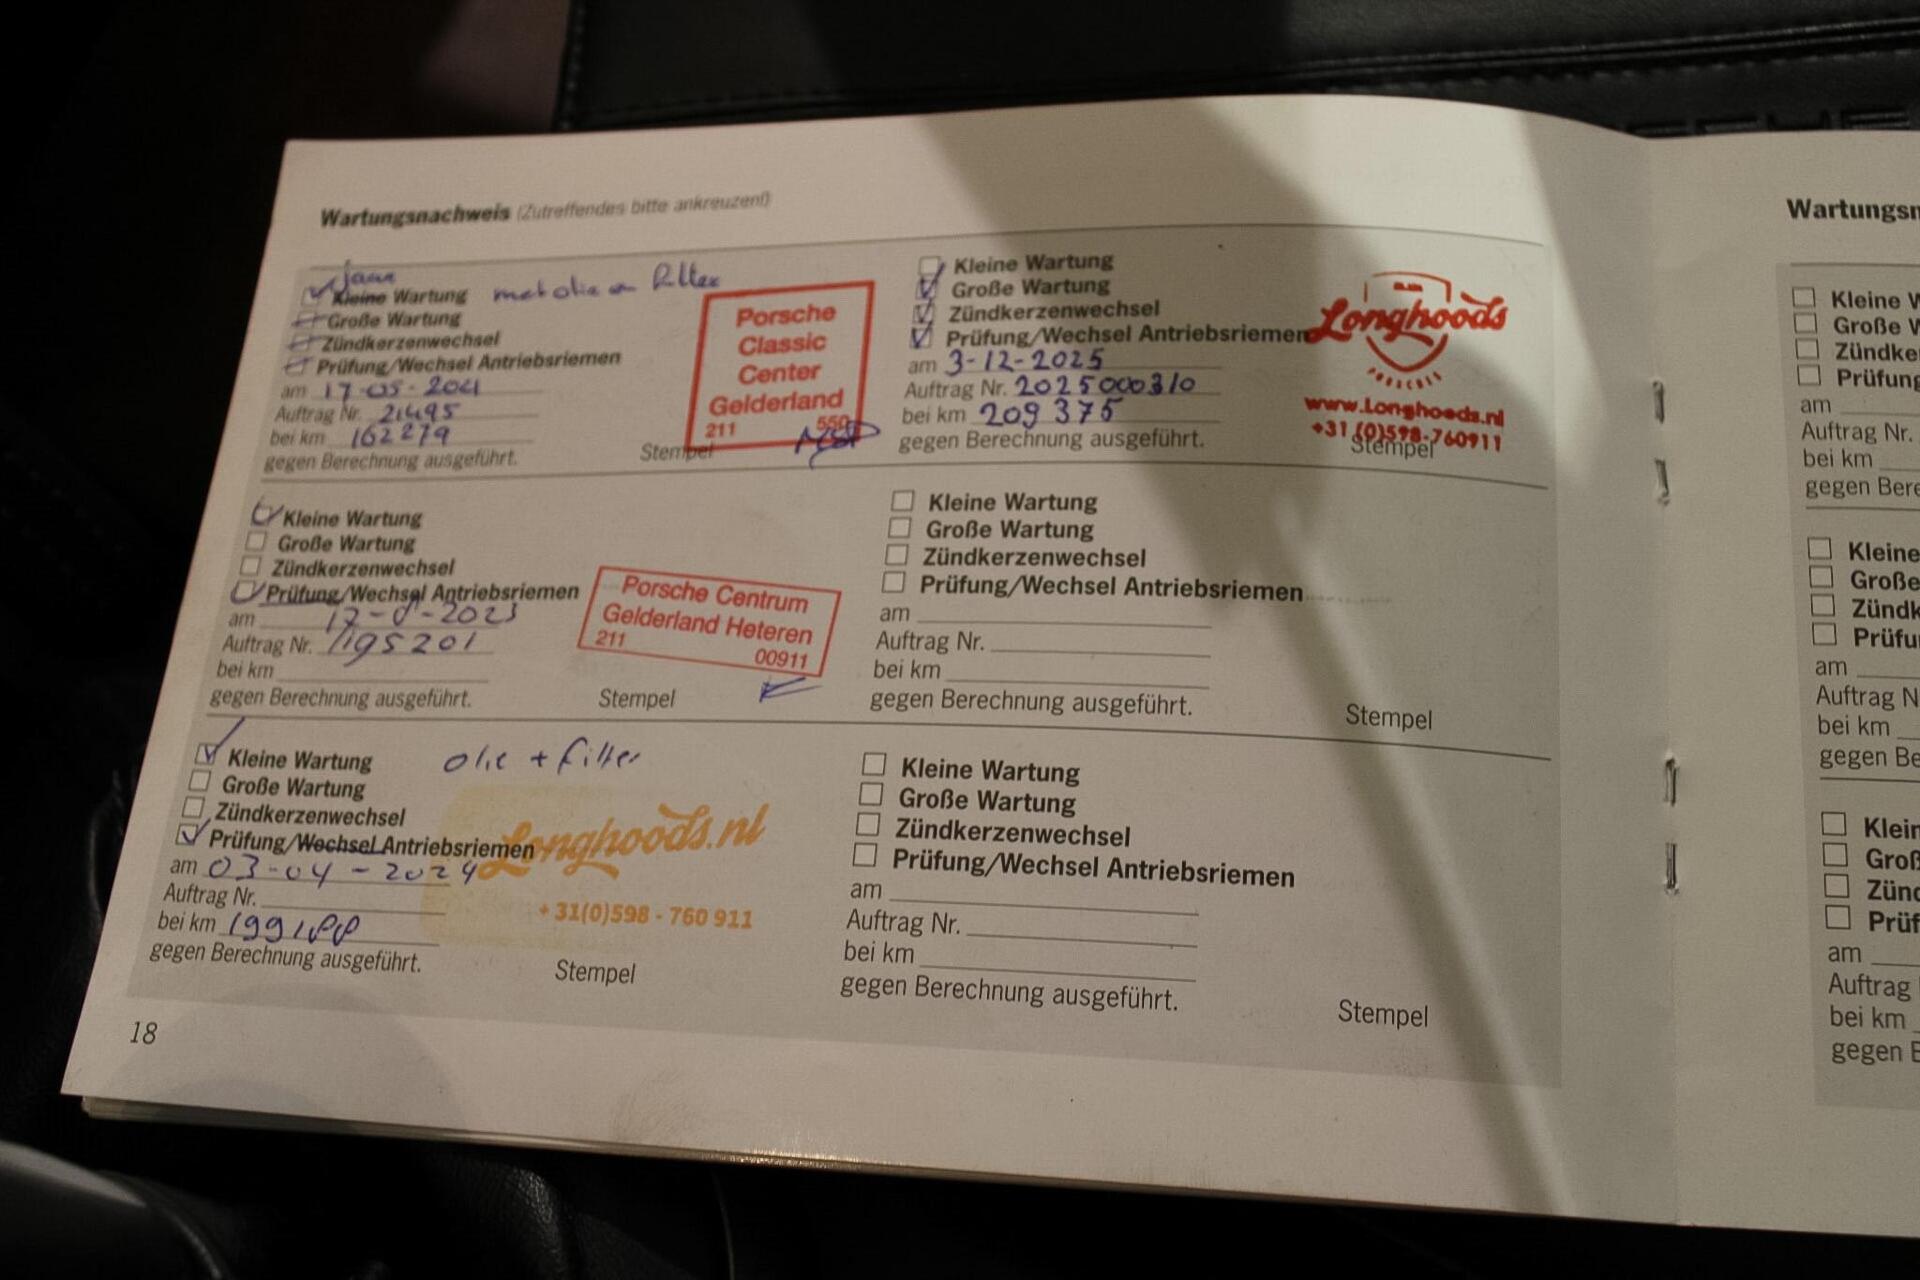 Wartungsnachweis (Zutreffendes bitte ankreuzen!)
Kleine Wartung
Große Wartung
Zündkerzenwechsel
Prüfung/Wechsel Antriebsriemen
am 17-05-2021
Auftrag Nr. 21495
bei km 162279
gegen Berechnung ausgeführt.
Stempel
Porsche
Classic
Center
Gelderland
211 550
Kleine Wartung
Große Wartung
Zündkerzenwechsel
Prüfung/Wechsel Antriebsriemen
am 17-8-2023
Auftrag Nr. 1195201
bei km
gegen Berechnung ausgeführt.
Stempel
Porsche Centrum
Gelderland Heteren
211 00911
Kleine Wartung olie + filter
Große Wartung
Zündkerzenwechsel
Prüfung/Wechsel Antriebsriemen
am 03-04-2024
Auftrag Nr.
bei km 199188
gegen Berechnung ausgeführt.
Stempel
Longhoods.nl
+31(0)598-760 911
18
Kleine Wartung
Große Wartung
Zündkerzenwechsel
Prüfung/Wechsel Antriebsriemen
am 3-12-2025
Auftrag Nr. 2025000310
bei km 209375
gegen Berechnung ausgeführt.
Stempel
Longhoods
PORSCHES
www.Longhoods.nl
+31(0)598-760911
Kleine Wartung
Große Wartung
Zündkerzenwechsel
Prüfung/Wechsel Antriebsriemen
am
Auftrag Nr.
bei km
gegen Berechnung ausgeführt.
Stempel
Kleine Wartung
Große Wartung
Zündkerzenwechsel
Prüfung/Wechsel Antriebsriemen
am
Auftrag Nr.
bei km
gegen Berechnung ausgeführt.
Stempel
Wartungsn
Kleine W
Große W
Zündke
Prüfung
am
Auftrag Nr.
bei km
gegen Bere
Kleine
Große
Zündk
Prüfu
am
Auftrag N
bei km
gegen Be
Klein
Groß
Zünd
Prüf
am
Auftrag
bei km
gegen B